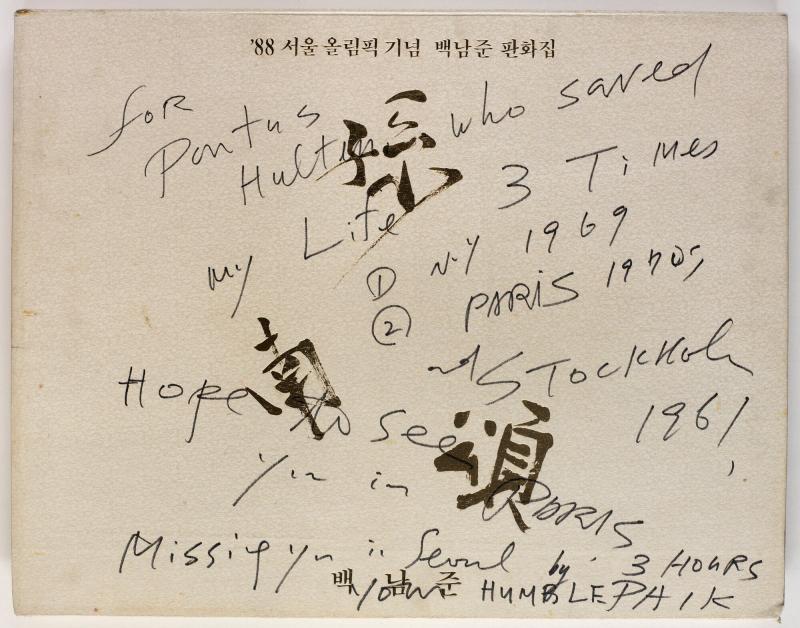 '88 서울올림픽기념 백남준 판화집
for
Pontus who saved
Hulten
my Life 3 Times
① NY 1969
② PARIS 1970s,
STOCKHOLM
1961,
南
Hope to see
you in PARIS
Missing you in Seoul by 3 HOURS
백 남 준
your HUMBLE PAIK